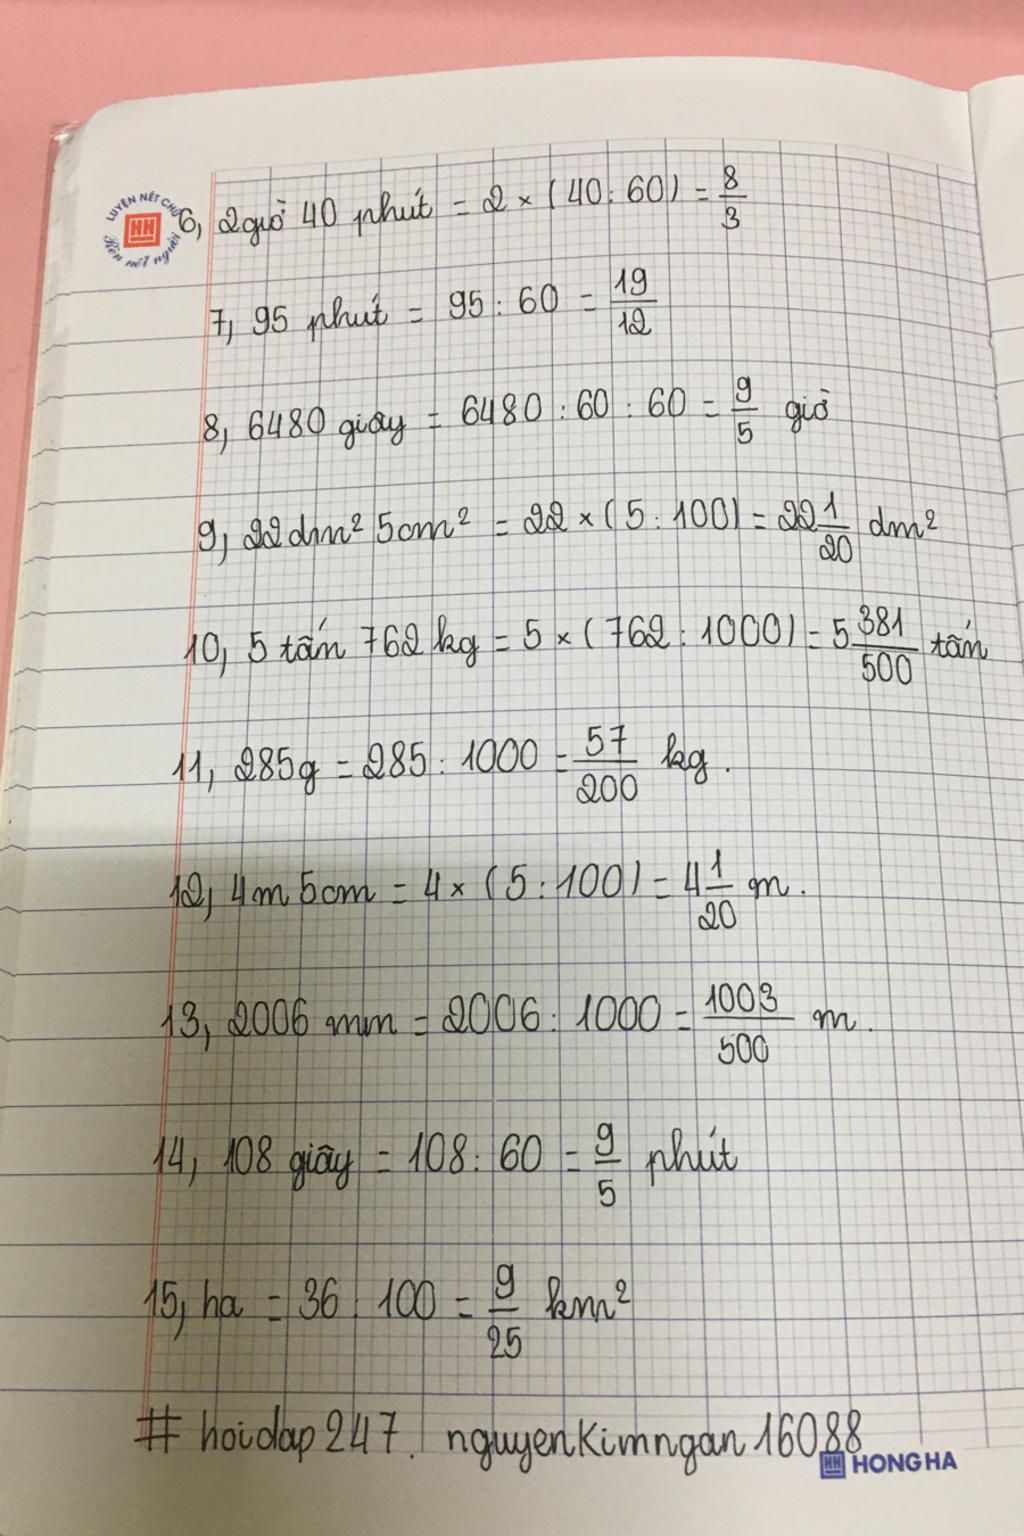 LUYỆN NẾT CHỮ
HH
Rèn nết người
6, 2giờ 40 phút = 2 × (40:60) = 8/3
7, 95 phút = 95 : 60 = 19/12
8, 6480 giây = 6480 : 60 : 60 = 9/5 giờ
9, 22dm² 5cm² = 22 × (5 : 100) = 22 1/20 dm²
10, 5 tấn 762 kg = 5 × (762 : 1000) = 5 381/500 tấn
11, 285g = 285 : 1000 = 57/200 kg.
12, 4m 5cm = 4 × (5 : 100) = 4 1/20 m.
13, 2006 mm = 2006 : 1000 = 1003/500 m.
14, 108 giây = 108 : 60 = 9/5 phút
15, ha = 36 : 100 = 9/25 km²
# hoidap 247. nguyenkimngan 16088
HH HONG HA